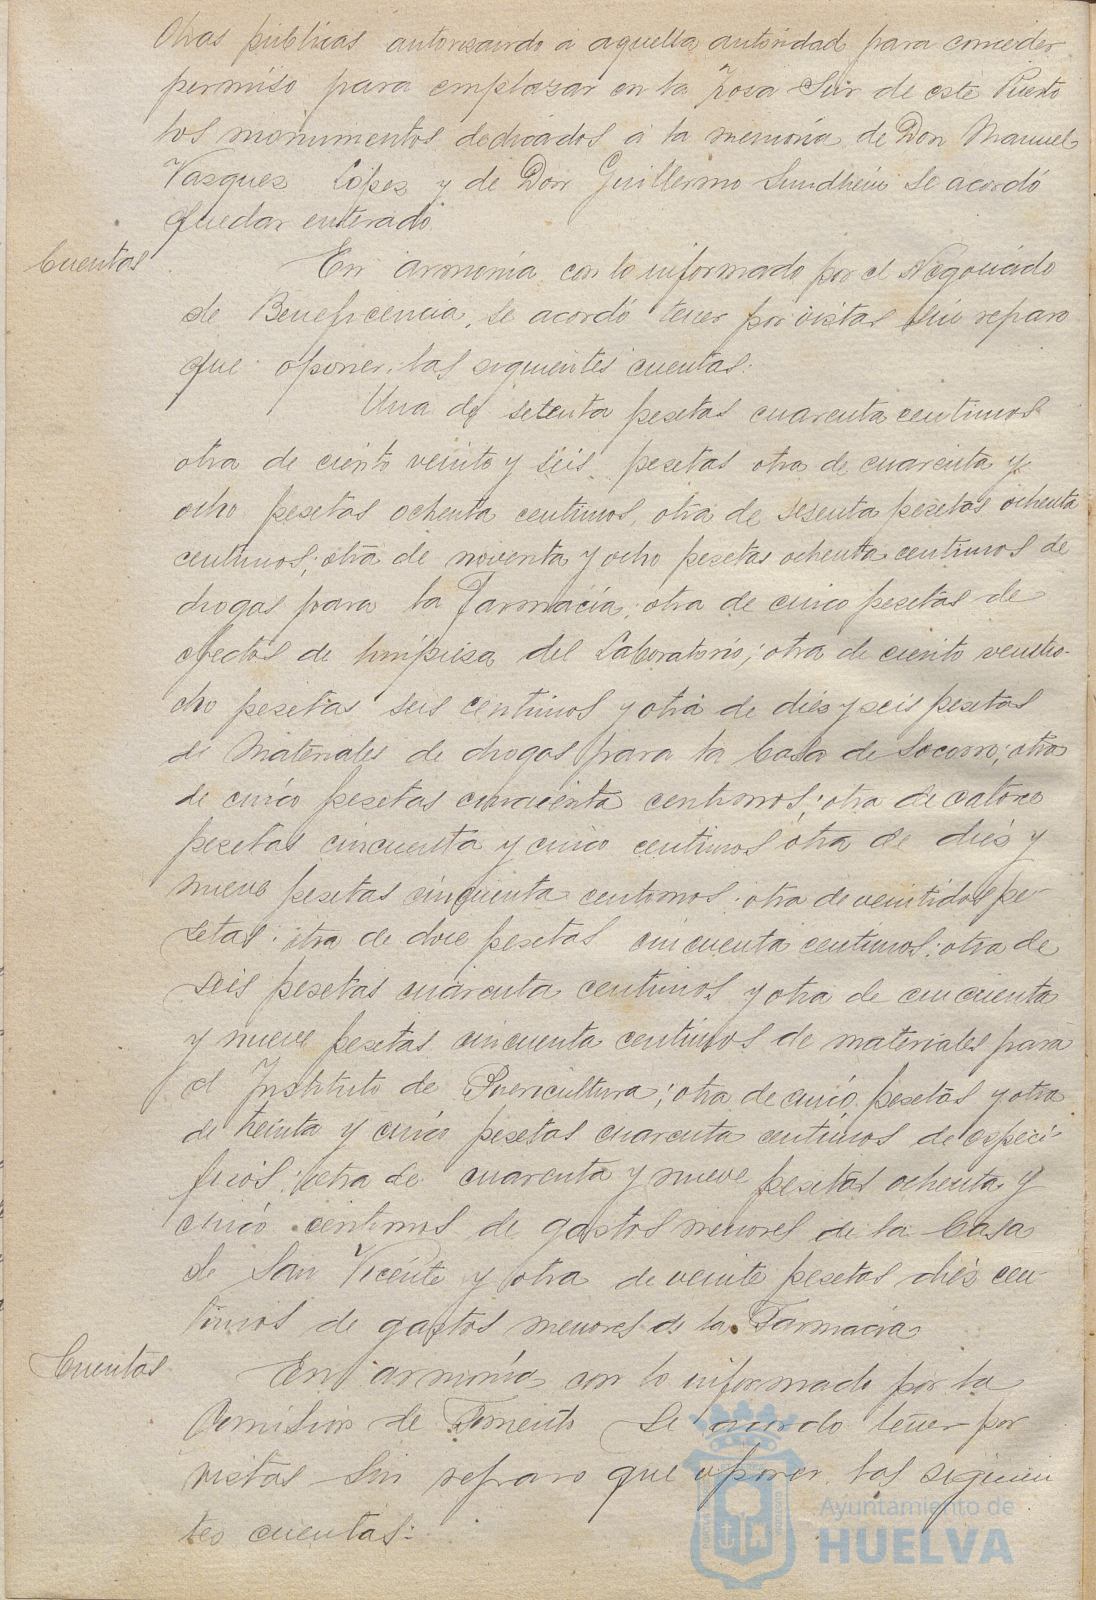 Obras públicas autorizando a aquella autoridad para conceder
permiso para emplazar en la Zona Sur de este Puerto
los monumentos dedicados a la memoria de Don Manuel
Vazquez López y de Don Guillermo Sundheim se acordó
quedar enterado.
Cuentas
En armonía con lo informado por el Negociado
de Beneficencia, se acordó tener por vistas sin reparo
que oponer las siguientes cuentas:
Una de setenta pesetas cuarenta centimos
otra de ciento veinte y seis pesetas otra de cuarenta y
ocho pesetas ochenta centimos, otra de sesenta pesetas ochenta
centimos; otra de noventa y ocho pesetas ochenta centimos de
drogas para la Farmacia; otra de cinco pesetas de
efectos de limpieza del Laboratorio; otra de ciento veintio-
cho pesetas seis centimos y otra de diez y seis pesetas
de materiales de drogas para la Casa de Socorro; otra
de cinco pesetas cincuenta centimos; otra de catorce
pesetas cincuenta y cinco centimos otra de diez y
nueve pesetas cincuenta centimos; otra de veintidos pe-
setas; otra de doce pesetas cincuenta centimos; otra de
seis pesetas cuarenta centimos y otra de cincuenta
y nueve pesetas cincuenta centimos de materiales para
el Instituto de Puericultura; otra de cinco pesetas y otra
de treinta y cinco pesetas cuarenta centimos de especí-
ficos; otra de cuarenta y nueve pesetas ochenta y
cinco centimos de gastos menores de la Casa
de San Vicente y otra de veinte pesetas diez cen-
timos de gastos menores de la Farmacia
Cuentas
En armonía con lo informado por la
Comisión de Fomento se acordo tener por
vistas sin reparo que oponer las siguien
tes cuentas:
Ayuntamiento de
HUELVA